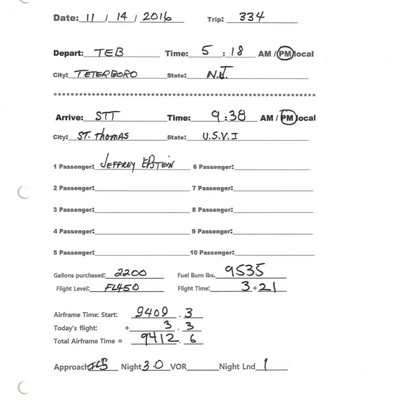 Date: 11 / 14 / 2016 Trip: 334
Depart: TEB Time: 5 : 18 AM / PM local
City: TETERBORO State: N.J.
Arrive: STT Time: 9:38 AM / PM local
City: ST. THOMAS State: U.S.V.I
1 Passenger: JEFFREY EPSTEIN 6 Passenger:
2 Passenger: 7 Passenger:
3 Passenger: 8 Passenger:
4 Passenger: 9 Passenger:
5 Passenger: 10 Passenger:
Gallons purchased: 2200 Fuel Burn lbs. 9535
Flight Level: FL450 Flight Time: 3+21
Airframe Time: Start: 9409 . 3
Today's flight: + 3 . 3
Total Airframe Time = 9412 . 6
Approach Night 3.0 VOR Night Lnd 1